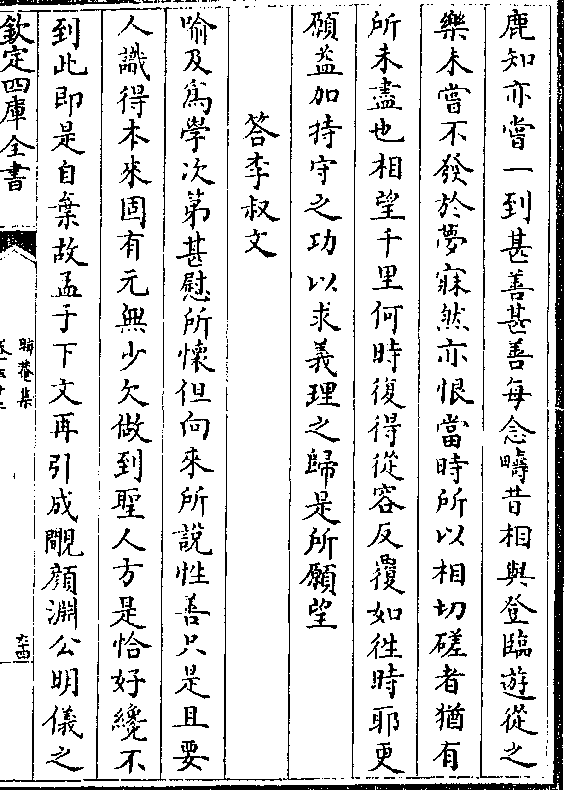 鹿知亦嘗一到甚善甚善每念疇昔相與登臨遊從之
樂未嘗不發於夢寐然亦恨當時所以相切磋者猶有
所未盡也相望千里何時復得從容反覆如徃時耶更
願益加持守之功以求義理之歸是所願望
答李叔文
喻及為學次第甚慰所懷但向來所說性善只是且要
人識得本來固有元無少欠做到聖人方是恰好纔不
到此即是自棄故孟子下文再引成覵顔淵公明儀之
欽定四庫全書
晦菴集